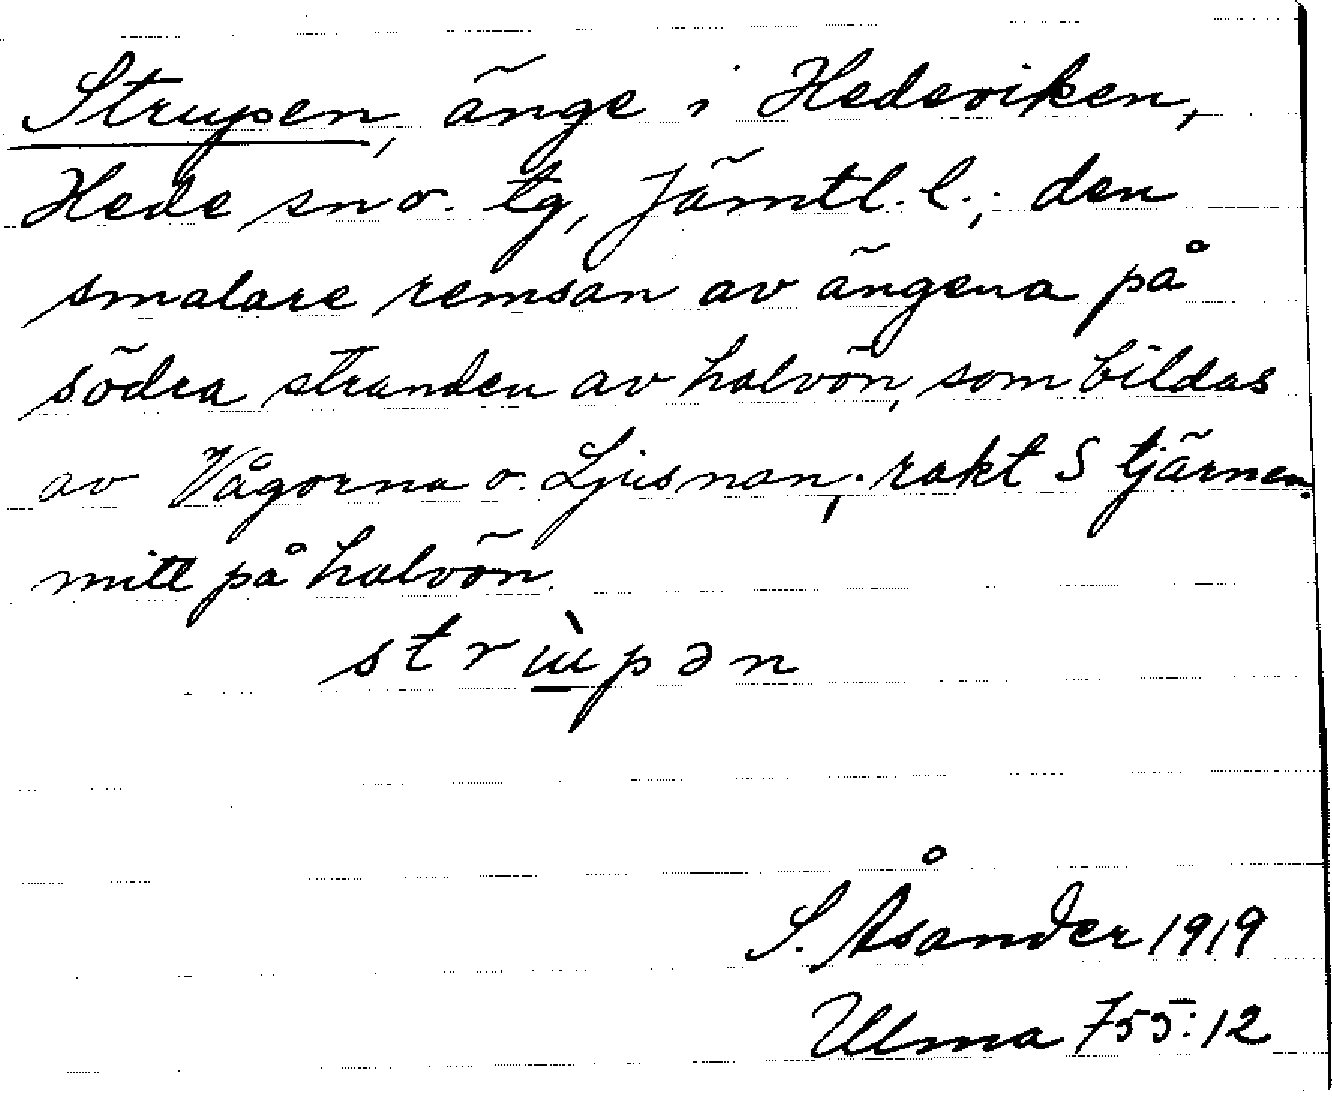 Strupen, änge i Hedeviken,
Hede sn o. tg, Jämtl. l.; den
smalare remsan av ängena på
södra stranden av halvön, som bildas
av Vågorna o. Ljusnan; rakt S tjärnen
mitt på halvön.
strɯ̀pən
S. Åsander 1919
Ulma 755:12